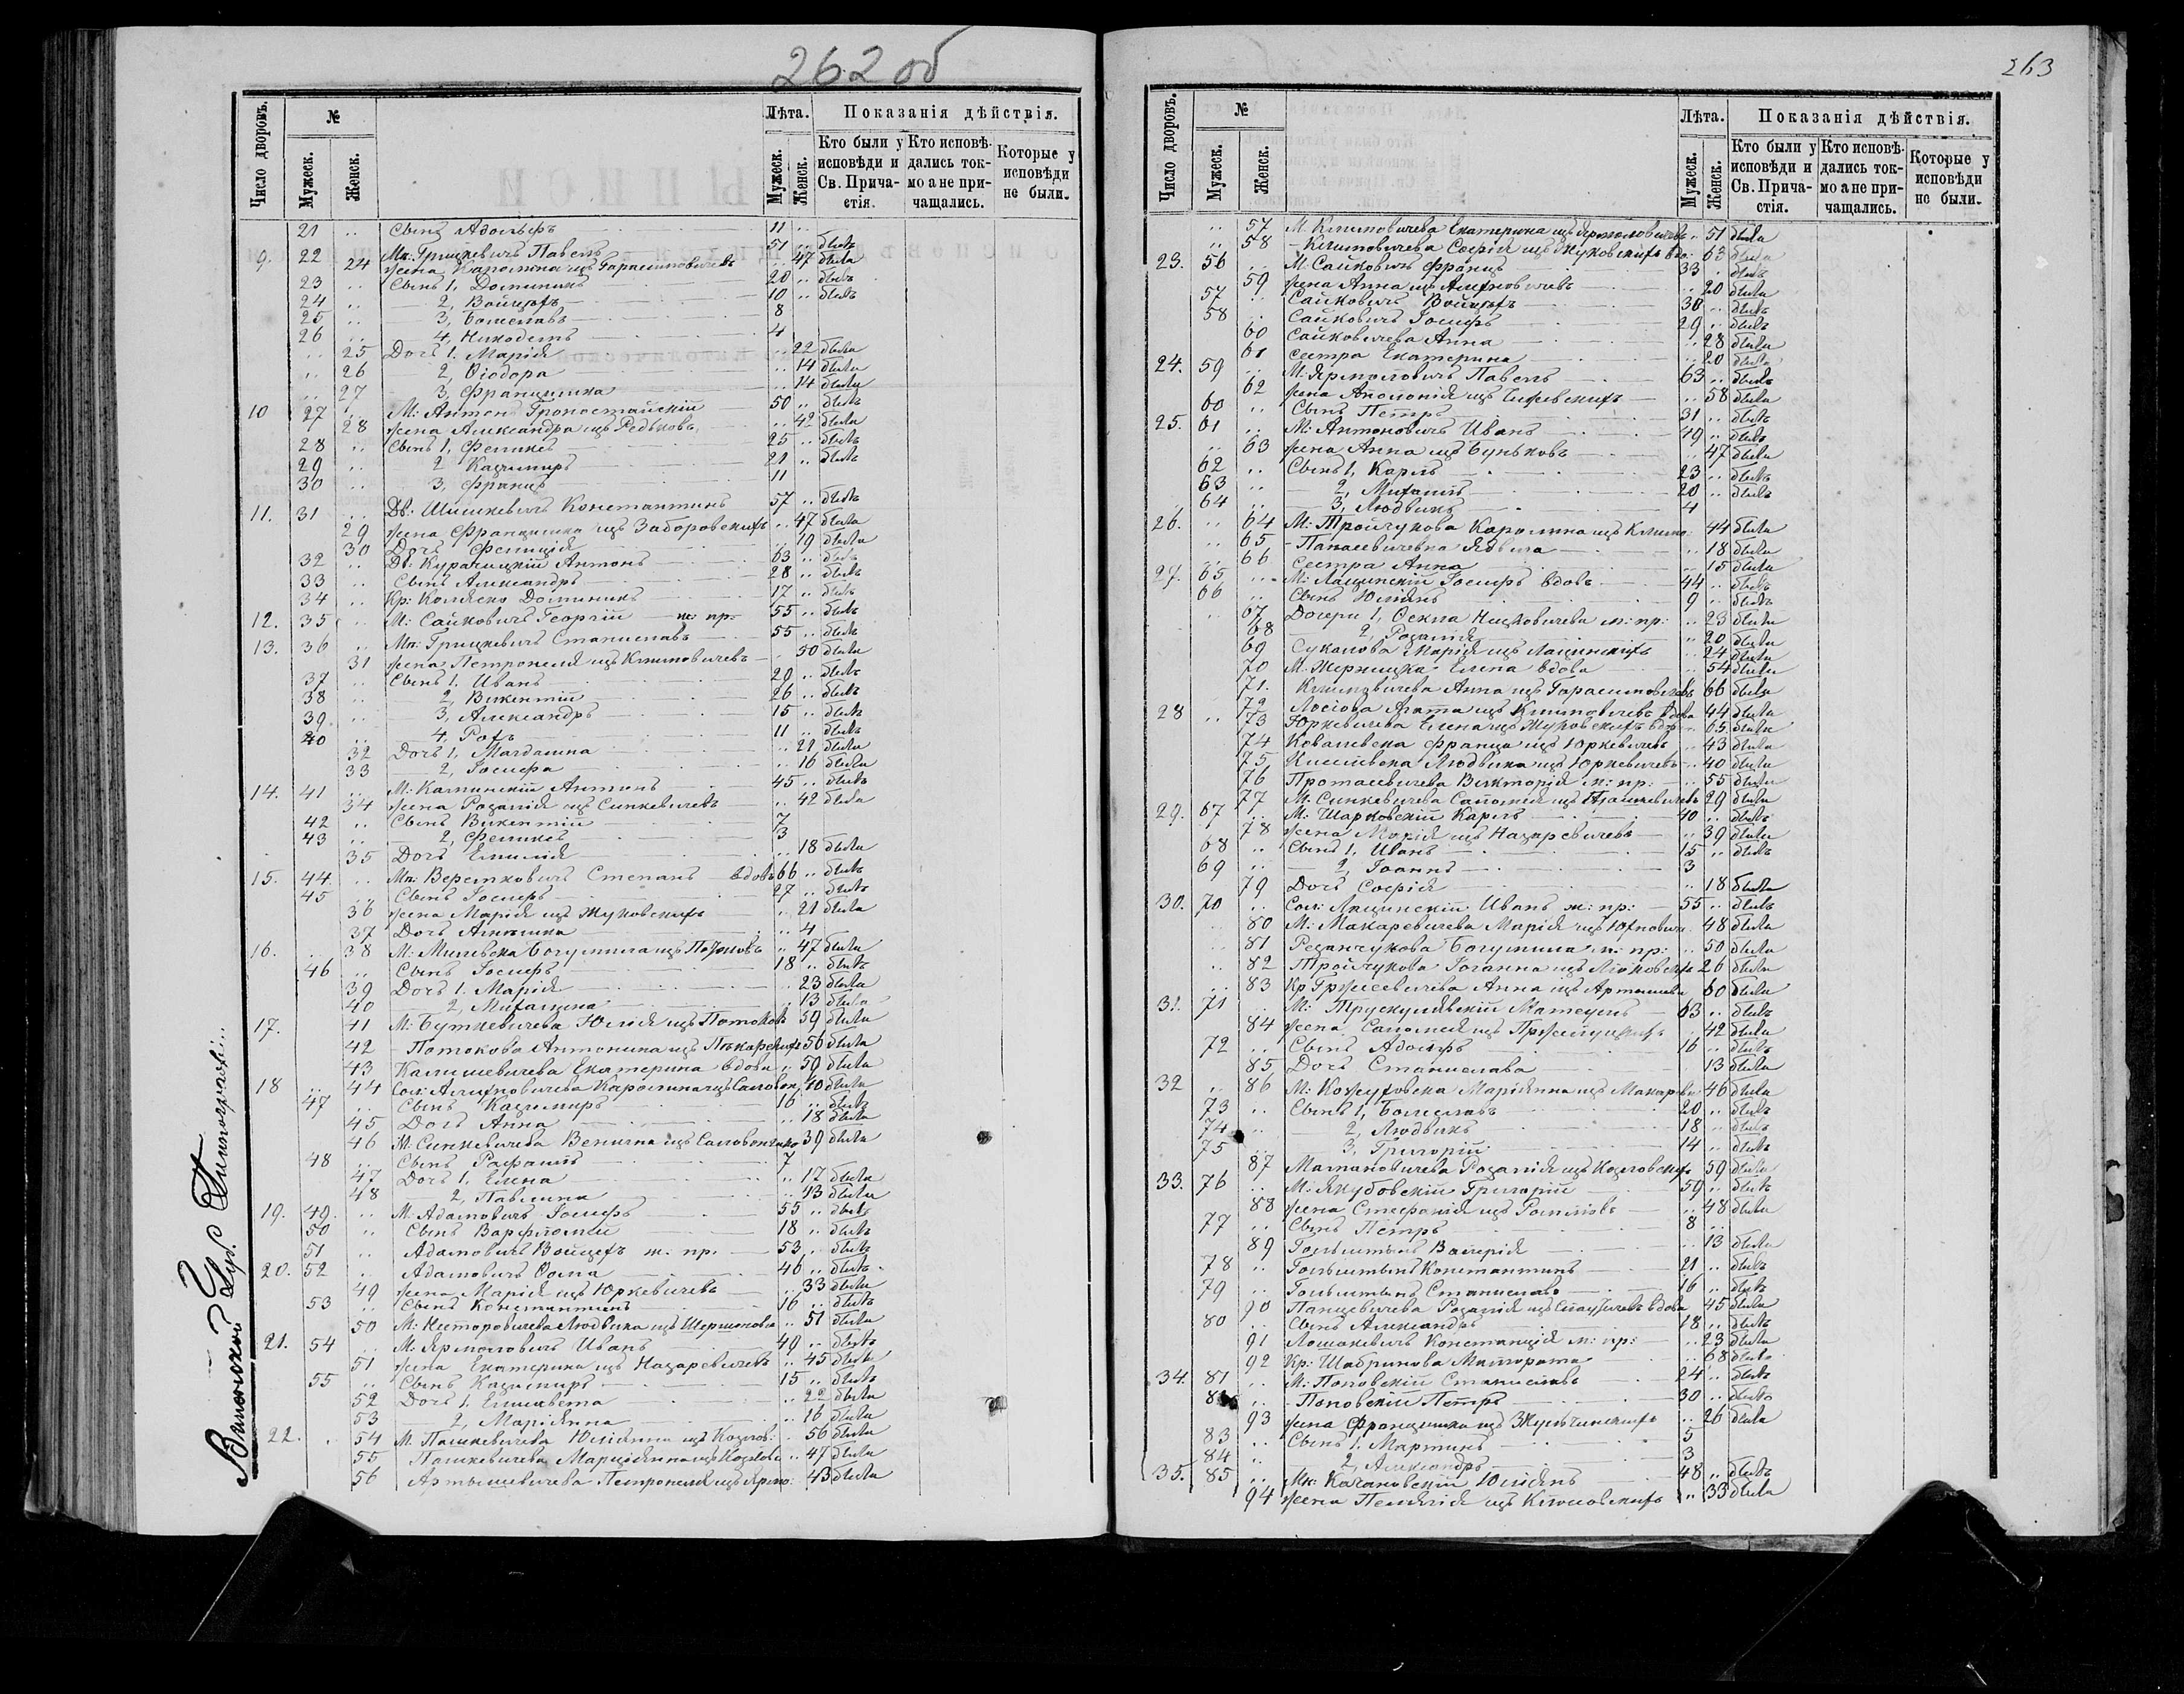 262 об
Число дворовъ. № Лѣта. Показанія дѣйствія.
Мужеск. Женск. Мужеск. Женск. Кто были у исповѣди и Св. Прича- стія. Кто исповѣ- дались ток- мо а не при- чащались. Которые у исповѣди не были.
21 .. Сынъ Адольфъ 11 ..
9. 22 Мѣ: Грицкевичъ Павелъ 51 .. былъ
24 жена Каролина изъ Гарасимовичевъ .. 47 была
23 .. Сынъ 1, Доминикъ 20 .. былъ
24 .. 2, Войцехъ 10 .. былъ
25 .. 3, Болеславъ 8
26 .. 4, Никодемъ 4
.. 25 Дочь 1. Марія .. 22 была
.. 26 2, Ѳіодора .. 14 была
.. 27 3, Францишка .. 14 была
10 27 .. М: Антон Гроностайскій 50 .. былъ
28 жена Александра изъ Редьковъ .. 42 была
28 .. Сынъ 1, Феликсъ 25 .. былъ
29 .. 2 Казимиръ 21 .. былъ
30 .. 3, Францъ 11
11. 31 .. Дв: Шишкевичъ Константинъ 57 .. былъ
29 жена Францишка изъ Заборовскихъ .. 47 была
30 Дочь Фелиція .. 19 была
32 .. Дв: Курачицкій Антонъ 63 .. былъ
33 .. Сынъ Александръ 28 .. былъ
34 .. Кр: Доминикъ 17 .. былъ
12. 35 .. М: Сайковичъ Георгій ж: пр. 55 .. былъ
13. 36 .. Мѣ: Грицкевичъ Станиславъ 55 .. былъ
31 жена Петронеля изъ Климовичевъ .. 50 была
37 .. Сынъ 1. Иванъ 29 .. былъ
38 .. 2, Викентій 26 .. былъ
39. .. 3, Александръ 15 .. былъ
40 .. 4, Рохъ 11 .. былъ
32 Дочь 1, Магдалина .. 21 была
33 2, Іосифа .. 16 была
14. 41 .. М: Калинскій Антонъ 45 .. былъ
34 жена Розалія изъ Синкевичевъ .. 42 была
42 .. Сынъ Викентій 7
43 .. 2, Феликсъ 3
35 Дочь Емилія .. 18 была
15. 44. .. Мѣ: Веремковичъ Степанъ вдовъ 66 .. былъ
45 .. Сынъ Іосифъ 27 .. былъ
36 жена Марія изъ Жуковскихъ .. 21 была
37 Дочь .. 4
16. . 38 М: Милевска Богумила изъ .. 47 была
46 .. Сынъ Іосифъ 18 .. былъ
39 Дочь 1. Марія .. 23 была
40 2, Михалина .. 13 была
17. 41 М: Буткевичева Юлія изъ Потоковъ 59 была
42 - Потокова Антонина изъ 56 была
43 Калишевичева Екатерина вдова .. 59 была
18 .. 44 Сол: Алихновичева Каролина изъ 40 была
47 .. Сынъ Казимиръ 16 .. былъ
45 Дочь Анна .. 18 была
46 М: Синкевичева изъ 39 была
48 .. Сынъ Рафаилъ 7
47 Дочь 1, Елена .. 17 была
48 2, Павлина .. 13 была
19. 49. .. М: Адамовичъ Іосифъ 55 .. былъ
50 .. Сынъ Варфломей 18 .. былъ
51 .. Адамовичъ Войцехъ ж. пр. 53 .. былъ
20. 52 .. Адамовичъ Ѳома 46 .. былъ
49 жена Марія изъ Юркевичевъ .. 33 была
53 .. Сынъ Константинъ 16 .. былъ
50 М: Несторовичева Людвика изъ .. 51 была
21. 54 .. М: Ярмоловичъ Иванъ 49 .. былъ
51 жена Екатерина изъ Назаревичевъ .. 45 была
55 .. Сынъ Казимиръ 15 .. былъ
52 Дочь 1. Елисавета .. 22 была
53 2, Маріянна .. 16 была
22. . 54 М. Пашкевичева Юліянна изъ Козлов: .. 56 была
55 Пашкевичева изъ .. 47 была
56 Артышевичева Петронеля изъ Ярмо: .. 43 была
Виленской Губ.
263
Число дворовъ. № Лѣта. Показанія дѣйствія.
Мужеск. Женск. Мужеск. Женск. Кто были у исповѣди и Св. Прича- стія. Кто исповѣ- дались ток- мо а не при- чащались. Которые у исповѣди не были.
.. 57 М. Климовичева Екатерина изъ Ярмоловичевъ .. 51 была
.. 58 - Климовичева Софія изъ Жуковскихъ вдо: 63 была
23. 56 .. М. Сайковичъ Францъ 33 .. былъ
59 жена Анна изъ Алихновичевъ .. 20 была
57 .. Сайковичъ Войцехъ 30 .. былъ
58 .. Сайковичъ Іосифъ 29 .. былъ
60 Сайковичева Анна .. 28 была
61 сестра Екатерина .. 20 была
24. 59 .. М: Ярмоловичъ Павелъ 63 .. былъ
62 жена Аполонія изъ .. 58 была
60 .. Сынъ Петръ 31 .. былъ
25. 61 .. М: Антоновичъ Иванъ 49 .. былъ
.. 63 жена Анна изъ Буньковъ .. 47 была
62 .. Сынъ 1, Карлъ 23 .. былъ
63 .. 2, Михаилъ 20 .. былъ
64 .. 3, Людвикъ 4
26. .. 64 М: Тройчукова Каролина изъ Климо: 44 была
.. 65 - Ядвига .. 18 была
.. 66 Сестра Анна .. 15 была
27. 65 .. М: Лащинскій Іосифъ вдовъ 44 .. былъ
66 .. Сынъ Юліянъ 9 .. былъ
.. 67 Дочери 1, Ѳекла Ницковичева ж: пр: .. 23 была
68 2, Розалія .. 20 была
69 Сукалова Марія изъ Лащинскихъ .. 24 была
70 М. Жерницка Елена вдова .. 54 была
71. Климовичева Анна изъ Гарасимовичевъ 66 была
72 Лосіова Агата изъ Климовичевъ вдова 44 была
28 .. 73 Юркевичева Елена изъ Жуковскихъ вдо: 65 была
74 Ковалевска Франца изъ Юркевичевъ .. 43 была
75 Людвика изъ Юркевичевъ .. 40 была
76 Протасевичева Викторія ж: пр: .. 55 была
77 М. Синкевичева Саломея изъ 29 была
29. 67 .. М: Шарковскій Карлъ 40 .. былъ
78 жена Марія изъ Назаревичевъ .. 39 была
68 .. Сынъ 1, Иванъ 15 .. былъ
69 .. 2, Іоаннъ 3
79 Дочь Софія .. 18 была
30. 70 .. Сол: Лащинскій Иванъ ж: пр: 55 .. былъ
.. 80 М: Макаревичева Марія изъ 48 была
.. 81 Богумила ж: пр: .. 50 была
.. 82 Тройчукова Іоганна изъ 26 была
.. 83 Кр: Анна изъ 60 была
31. 71 .. М: Матеушъ 63 .. былъ
84 жена Саломея изъ .. 42 была
72 .. Сынъ Адольфъ 16 .. былъ
85 Дочь Станислава 13 была
32 .. 86 М: Кожуховска Маріянна изъ Макарови: 46 была
73 .. Сынъ 1, Болеславъ 20 .. былъ
74 .. 2, Людвикъ 18 .. былъ
75 .. 3, Григорій 14 .. былъ
87 Розалія изъ Козловскихъ 59 была
33. 76 .. М: Якубовскій Григорій 59 .. былъ
88 жена Стефанія изъ .. 48 была
77 .. Сынъ Петръ 8 ..
89 Гольштынъ Валерія .. 13 была
78 .. Гольштынъ Константинъ 21 .. былъ
79 .. Гольштынъ Станиславъ 16 .. былъ
90 Панцевичева Розалія изъ вдова 45 была
80 .. Сынъ Александръ 18 .. былъ
91 Лошакевичъ Констанція ж: пр: .. 23 была
92 Кр: Шабринова Малгората .. 68 была
34. 81 .. М: Поповскій Станиславъ 24 .. былъ
82 .. - Поповскій Петръ 30 .. былъ
93 жена Францишка изъ .. 26 была
83 .. Сынъ 1. Мартинъ 5
84 .. 2, Александръ 3
35. 85 .. Мѣ: Качановскій Юліянъ 48 .. былъ
94 жена Пелягія изъ .. 33 была